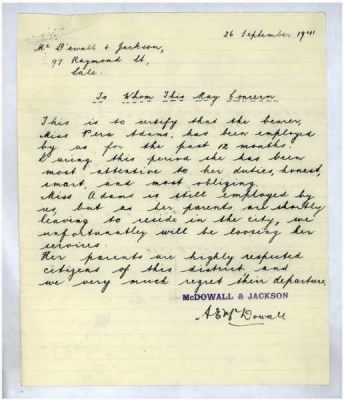 26 September 1941
Mc Dowall & Jackson,
97 Raymond St,
Sale.
To Whom This May Concern
This is to certify that the bearer,
Miss Vera Adams, has been employed
by us for the past 12 months.
During this period she has been
most attentive to her duties, honest,
smart, and most obliging.
Miss Adams is still employed by
us, but as her parents are shortly
leaving to reside in the city, we
unfortunatly will be loosing her
services.
Her parents are highly respected
citizens of this district, and
we very much regret their departure.
McDOWALL & JACKSON
A E McDowall